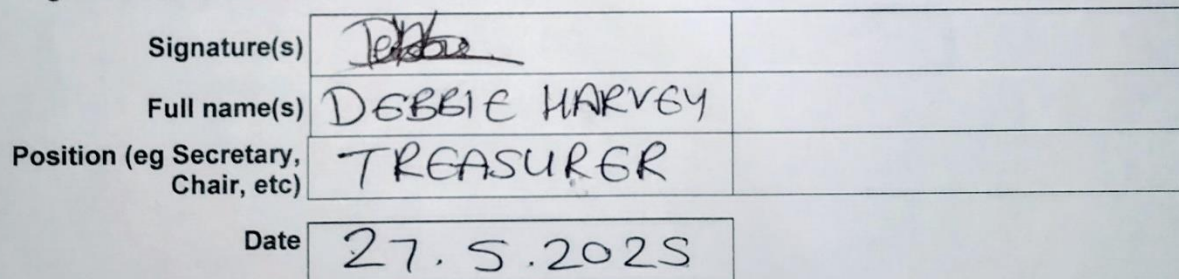 Signature(s)
Full name(s) DEBBIE HARVEY
Position (eg Secretary, TREASURER
Chair, etc)
Date 27.5.2025